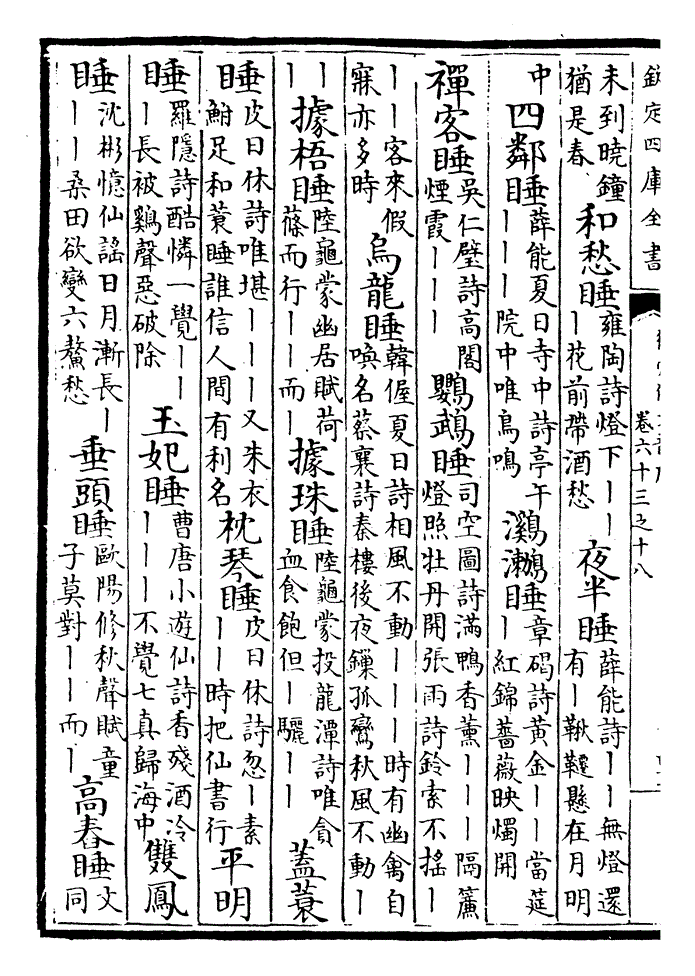 欽定四庫全書
卷六十三之十八
未到曉鐘猶是春 和愁睡 雍陶詩燈下丨丨丨花前帶酒愁 夜半睡 薛能詩丨丨無燈還有丨鞦韆懸在月明
中 四鄰睡 薛能夏日寺中詩亭午丨丨丨院中唯鳥鳴 鸂鶒睡 章碣詩黄金丨丨當筵丨紅錦薔薇映燭開
禪客睡 吳仁璧詩高閣煙霞丨丨丨 鸚鵡睡 司空圖詩滿鴨香薰丨丨丨隔簾燈照牡丹開張雨詩鈴索不摇丨
丨丨客來假寐亦多時 烏龍睡 韓偓夏日詩相風不動丨丨丨時有幽禽自喚名蔡襄詩秦樓後夜鏁孤鸞秋風不動丨
丨丨 據梧睡 陸龜蒙幽居賦荷蓧而行丨丨而丨 據珠睡 陸龜蒙投龍潭詩唯貪血食飽但丨驪丨丨 蓋蓑
睡 皮日休詩唯堪丨丨丨又朱衣鮒足和蓑睡誰信人間有利名 枕琴睡 皮日休詩忽丨素丨丨時把仙書行 平明
睡 羅隱詩酷憐一覺丨丨丨長被鷄聲惡破除 玉妃睡 曹唐小遊仙詩香殘酒冷丨丨丨不覺七真歸海中 雙鳳
睡 沈彬憶仙謠日月漸長丨丨丨桑田欲變六鰲愁 垂頭睡 歐陽修秋聲賦童子莫對丨丨而丨 高舂睡 文同